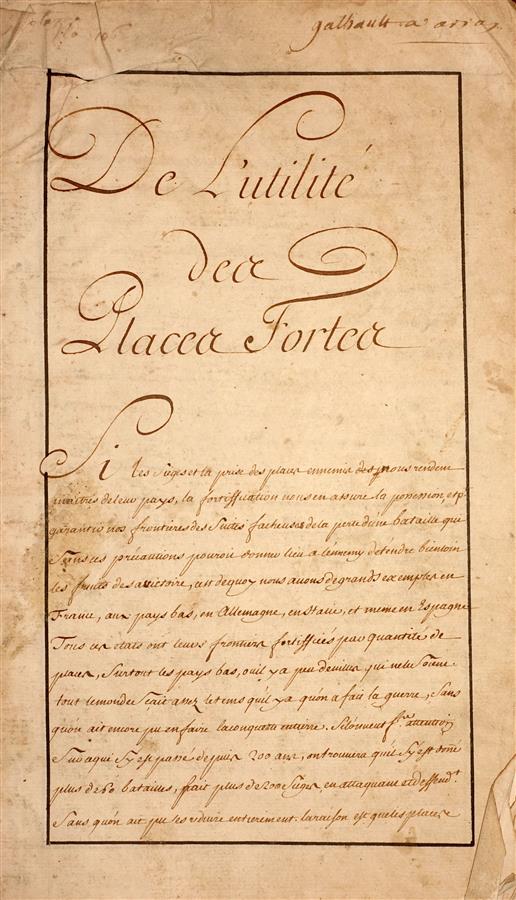 galhault a arras
De L'utilité
des
Places Fortes
Si les Sieges et la prise des places ennemies nous rendent
maitres de leur pays, la fortiffication nous en assure la possession, et
garantir nos frontieres des Suittes facheuses de la perte d'une bataille que
Sans ces précautions pouroit donner lieu a lenemy detendre bientoin
les fruits de sa victoire, c'est dequoy nous avons de grands exemples en
France, aux pays bas, en Allemagne, en Italie, et meme en Espagne
Tous ces etats ont leurs frontieres fortiffiées par quantité de
places, Surtout les pays bas, ou il y a peu de villes qui ne le Soient
tout le monde Sçait assez le tems qu'il y a qu'on a fait la guerre, Sans
qu'on ait encore pu en faire la conqueste entierre. Si l'on veut f.re attention
Sur ce qui S'y est passé depuis 200 ans, on trouvera qu'il S'y est donné
plus de 60 batailles, fait plus de 200 Sieges, en attaquant et deffend.t
Sans qu'on ait pu les reduire entierement. la raison est que les places